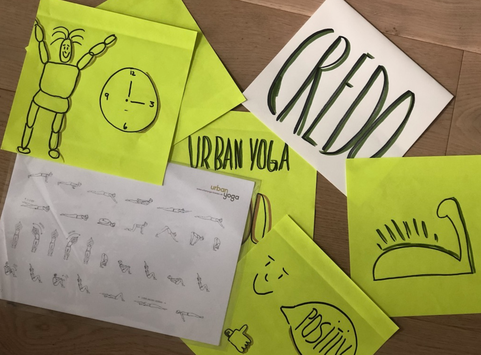 12
3
6
9
CREDO
URBAN YOGA
urban
yoga
POSITIV